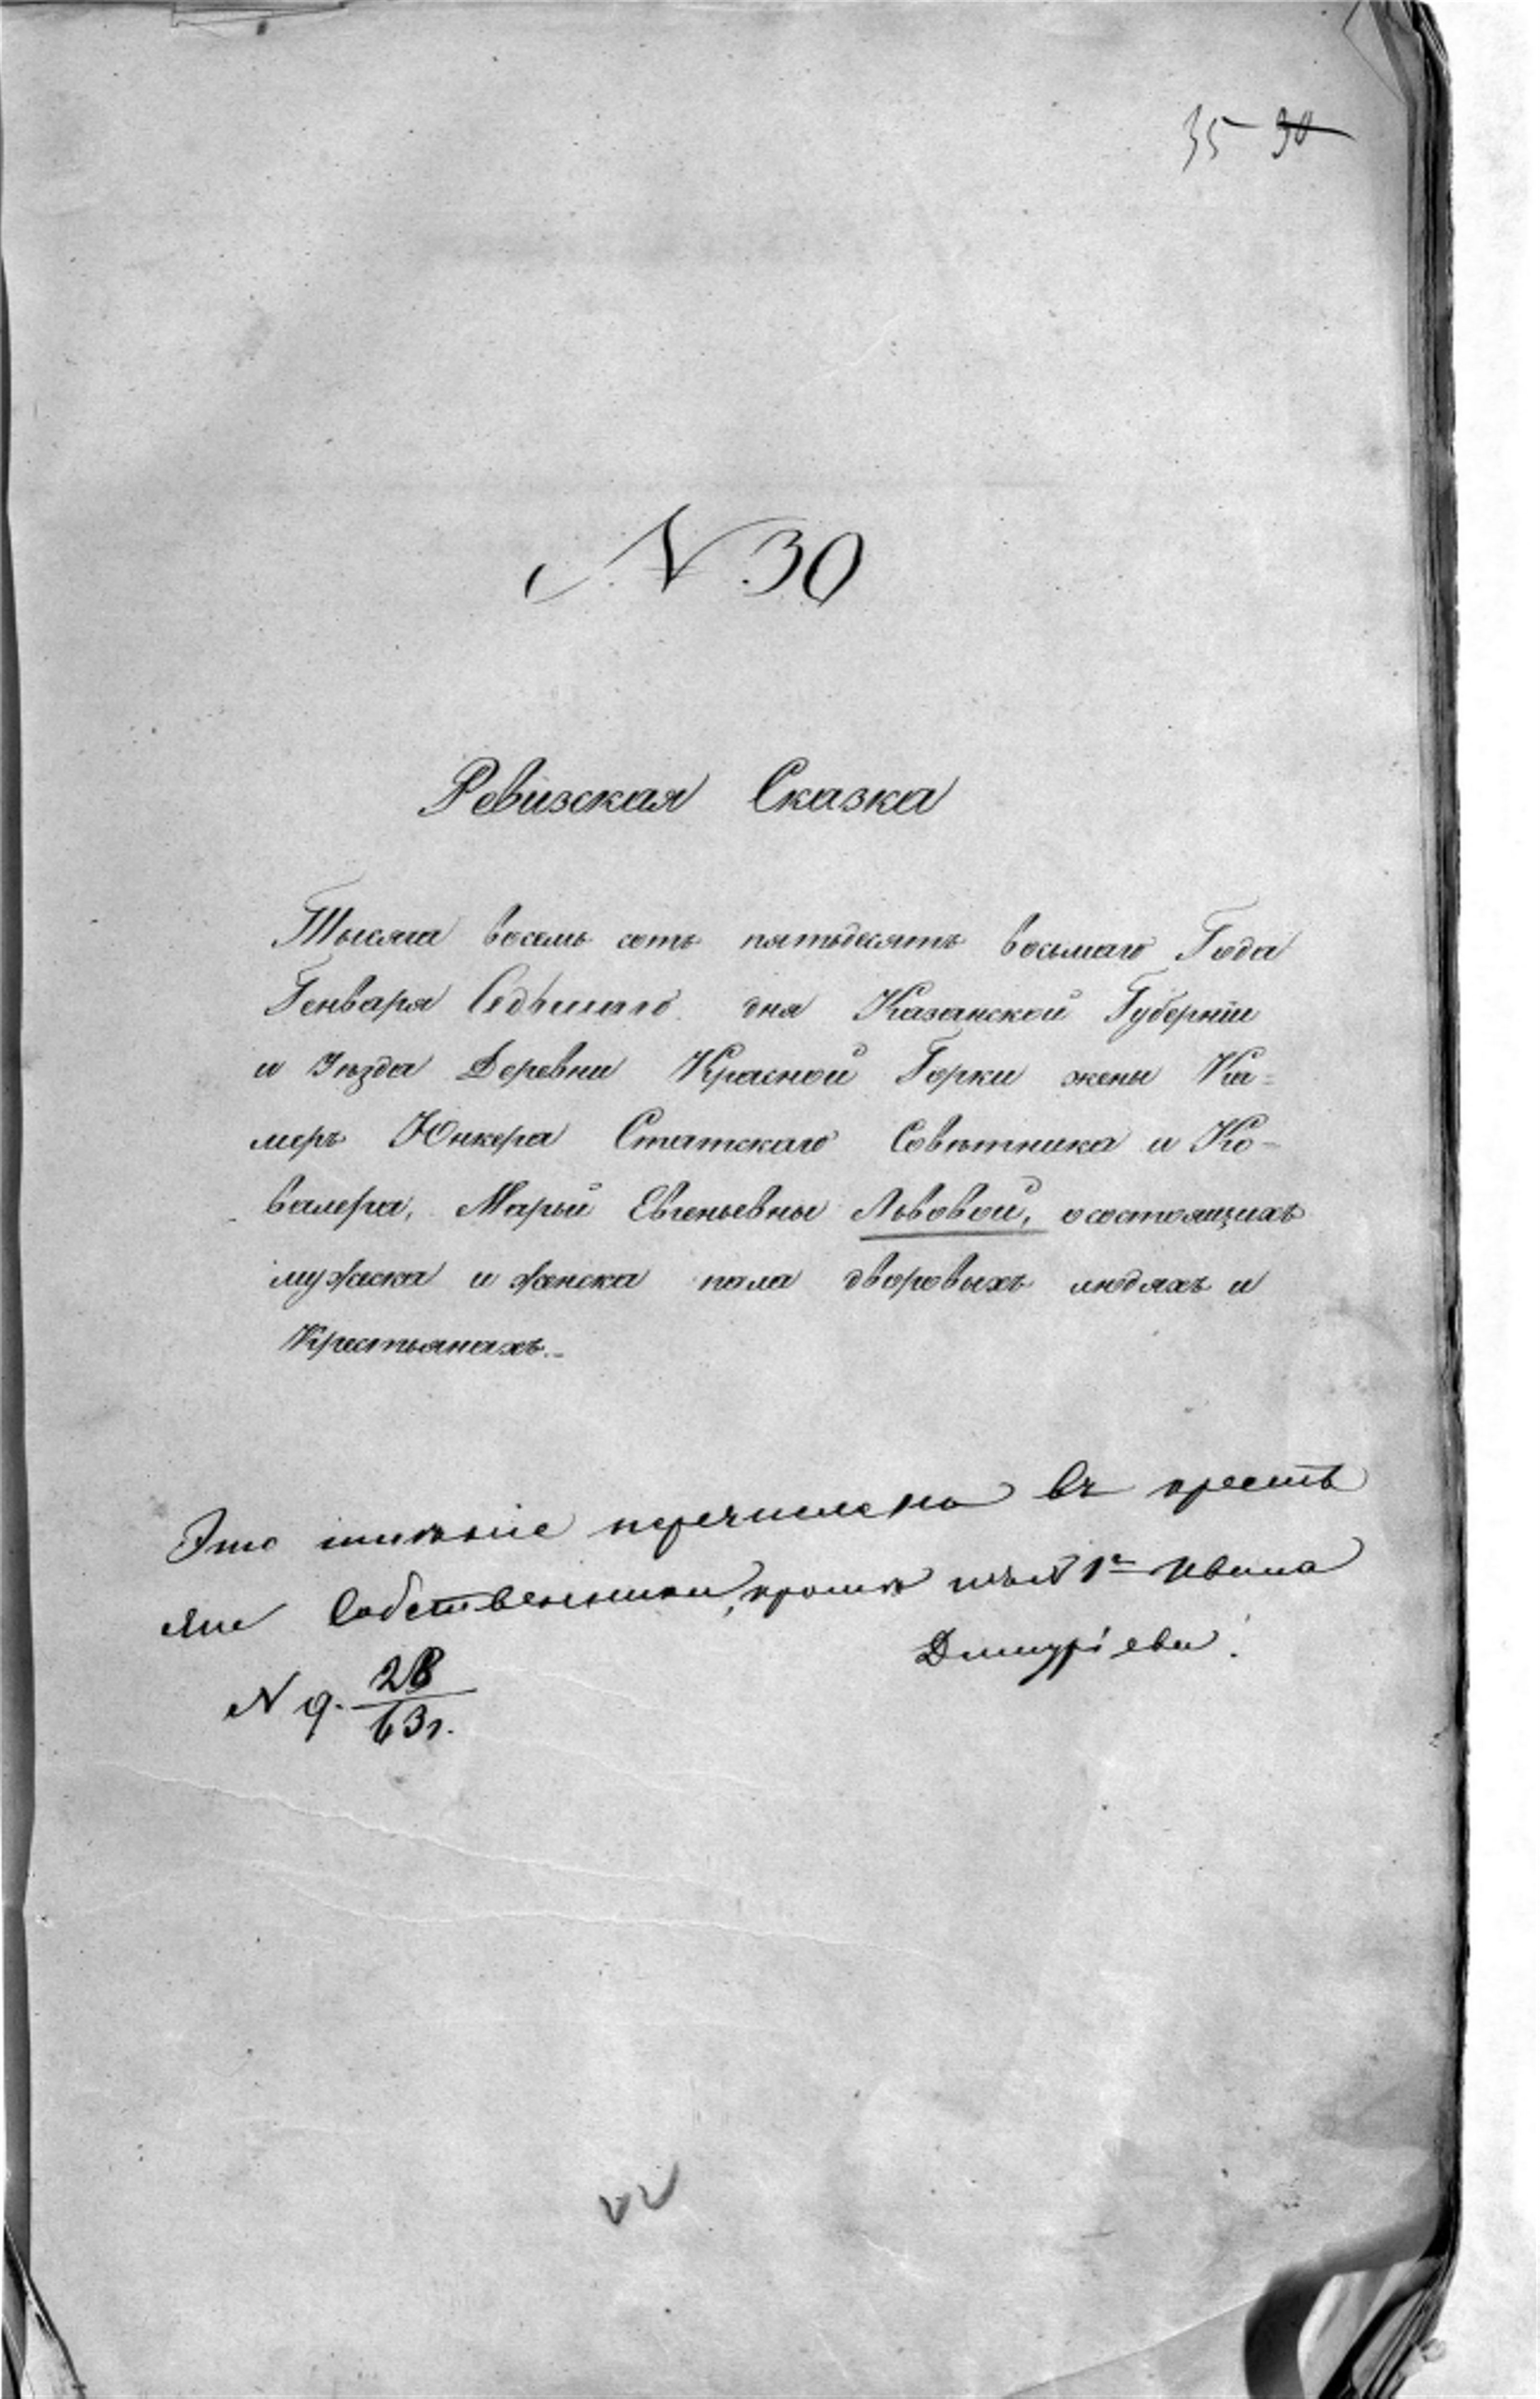 35 30
N 30
Ревизская Сказка
Тысяча восемь сотъ пятьдесятъ восьмаго Года
Генваря Седьмаго дня Казанской Губерніи
и Уѣзда Деревни Красной Горки жены Ка=
меръ Юнкера Статскаго Совѣтника и Ка-
валера, Марьи Евгеньевны Львовой, о состоящихъ
мужеска и женска пола дворовыхъ людяхъ и
Крестьянахъ.
Это имѣніе перечислено въ кресть
яне Собственники, кромѣ Ивана
Дмитріева.
N 9. 28
63 г.